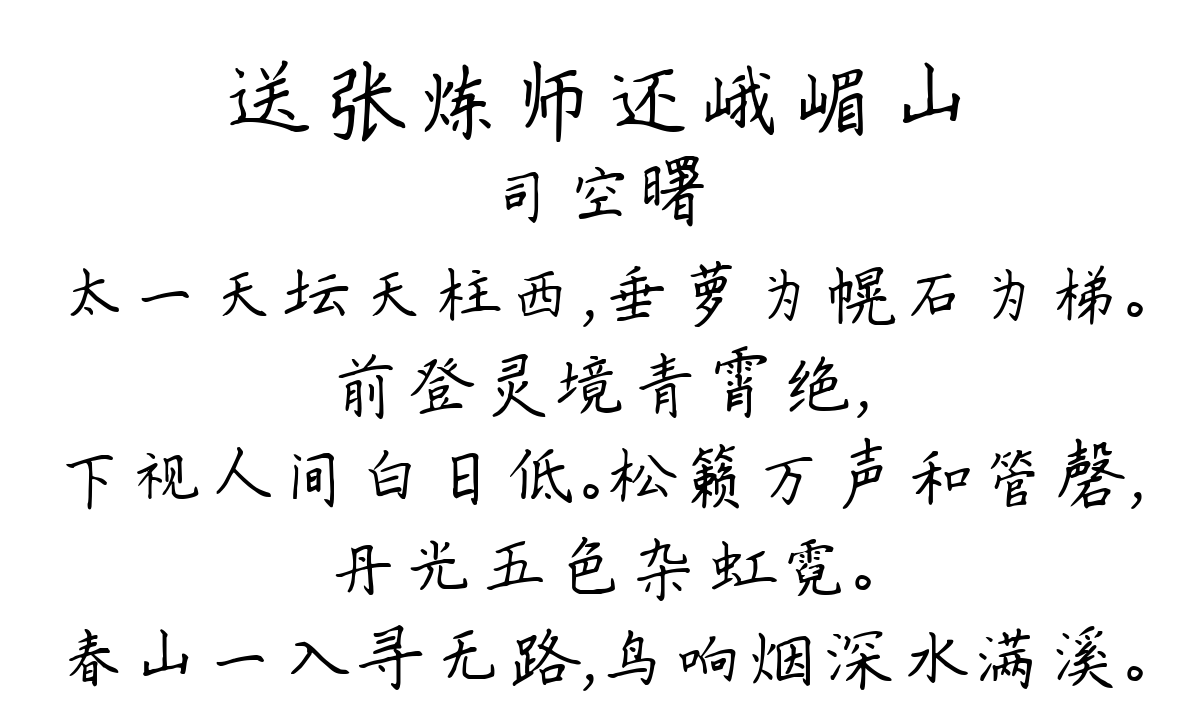 送张炼师还峨嵋山
司空曙
太一天坛天柱西,垂萝为幌石为梯。
前登灵境青霄绝,
下视人间白日低。松籁万声和管磬,
丹光五色杂虹霓。
春山一入寻无路,鸟响烟深水满溪。